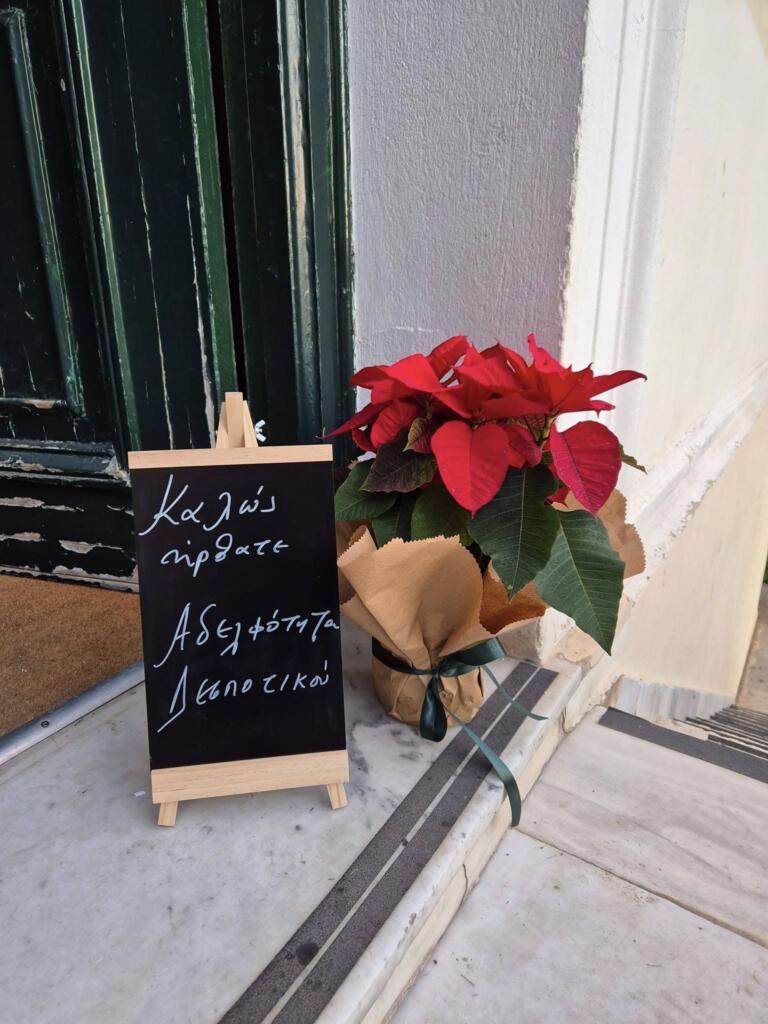 Καλώς
ήρθατε
Αδελφότητα
Δεσποτικού